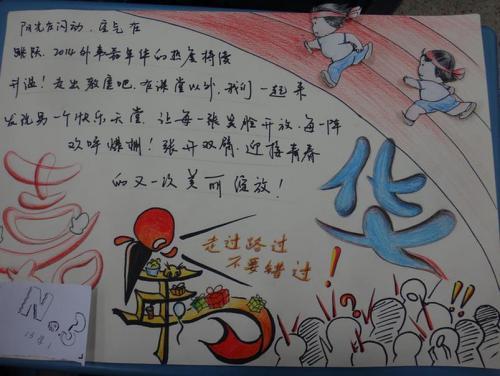 阳光在闪动,空气在
跳跃。2014外来嘉年华的热度持续
升温!走出教室吧,在课堂以外,我们一起来
发现另一个快乐天堂,让每一张笑脸开放,每一阵
欢呼爆棚!张开双臂,迎接青春
的又一次美丽绽放!
嘉
年
华
走过路过
不要错过!
No.3